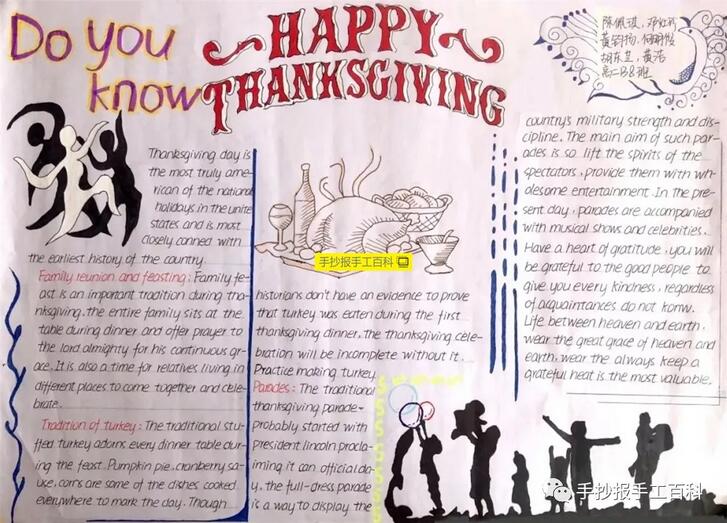 Do you
know
HAPPY
THANKSGIVING
Thanksgiving day is
the most truly ame-
rican of the national
holidays in the unite
states and is most
closely conned with
the earliest history of the country.
Family reunion and feasting: Family fe-
ast is an important tradition during tha-
nksgiving. the entire family sits at the
table during dinner and offer prayer to
the lord almighty for his continuous gr-
ace. It is also a time for relatives living in
different places to come together and cele-
brate.
Tradition of turkey: The traditional stu-
ffed turkey adorns every dinner table dur-
ing the feast. Pumpkin pie, cranberry sa-
use, corns are some of the dishes cooked
everywhere to mark the day. Though
手抄报手工百科
historians don't have an evidence to prove
that turkey was eaten during the first
thanksgiving dinner, the thanksgiving cele-
bration will be incomplete without it.
Practice making turkey.
Parades: The traditional
thanksgiving parade-
Probably started with
president lincoln procla-
iming it can official da-
y. the full-dress parade
is a way to display the
陈佩琪,邓
黄钧扬,何明俊
胡东, 黄浩
高二B8班
country's military strength and dis-
cipline. The main aim of such par-
ades is so lift the spirits of the
spectators, provide them with wh-
olesome entertainment. In the pre-
sent day, parades are accompanied
with musical shows and celebrities.
Have a heart of gratitude, you will
be grateful to the good people to
give you every kindness, regardless
of acquaintances do not konw.
Life between heaven and earth,
wear the great grace of heaven and
earth, wear the always keep a
grateful heat is the most valuable.
手抄报手工百科